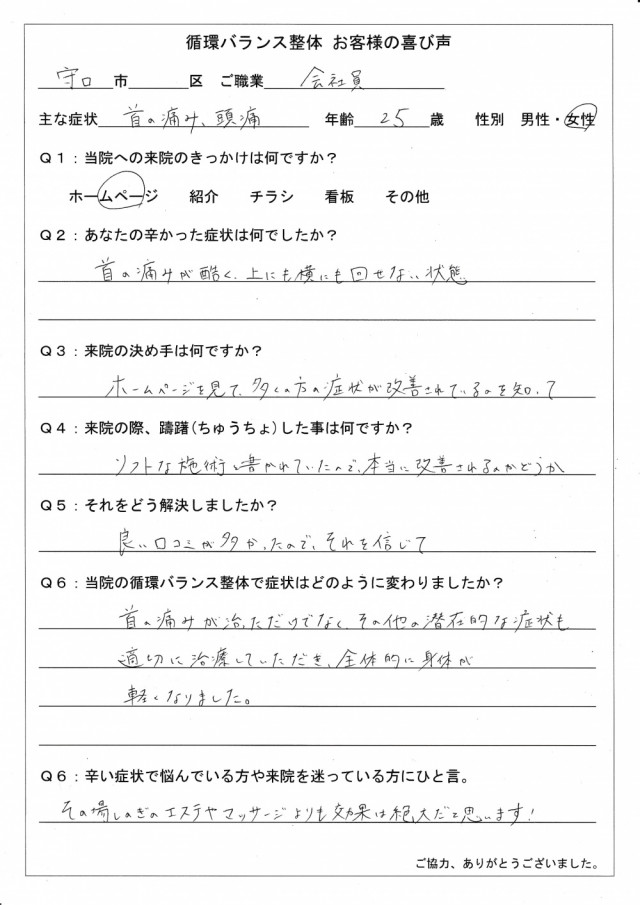 循環バランス整体 お客様の喜び声
守口 市 区 ご職業 会社員
主な症状 首の痛み、頭痛 年齢 25 歳 性別 男性・女性
Q1:当院への来院のきっかけは何ですか?
ホームページ 紹介 チラシ 看板 その他
Q2:あなたの辛かった症状は何でしたか?
首の痛みが酷く、上にも横にも回せない状態
Q3:来院の決め手は何ですか?
ホームページを見て、多くの方の症状が改善されているのを知って
Q4:来院の際、躊躇(ちゅうちょ)した事は何ですか?
ソフトな施術と書かれていたので、本当に改善されるのかどうか
Q5:それをどう解決しましたか?
良い口コミが多かったので、それを信じて
Q6:当院の循環バランス整体で症状はどのように変わりましたか?
首の痛みが治っただけでなく、その他の潜在的な症状も
適切に治療していただき、全体的に身体が
軽くなりました。
Q6:辛い症状で悩んでいる方や来院を迷っている方にひと言。
その場しのぎのエステやマッサージよりも効果は絶大だと思います!
ご協力、ありがとうございました。